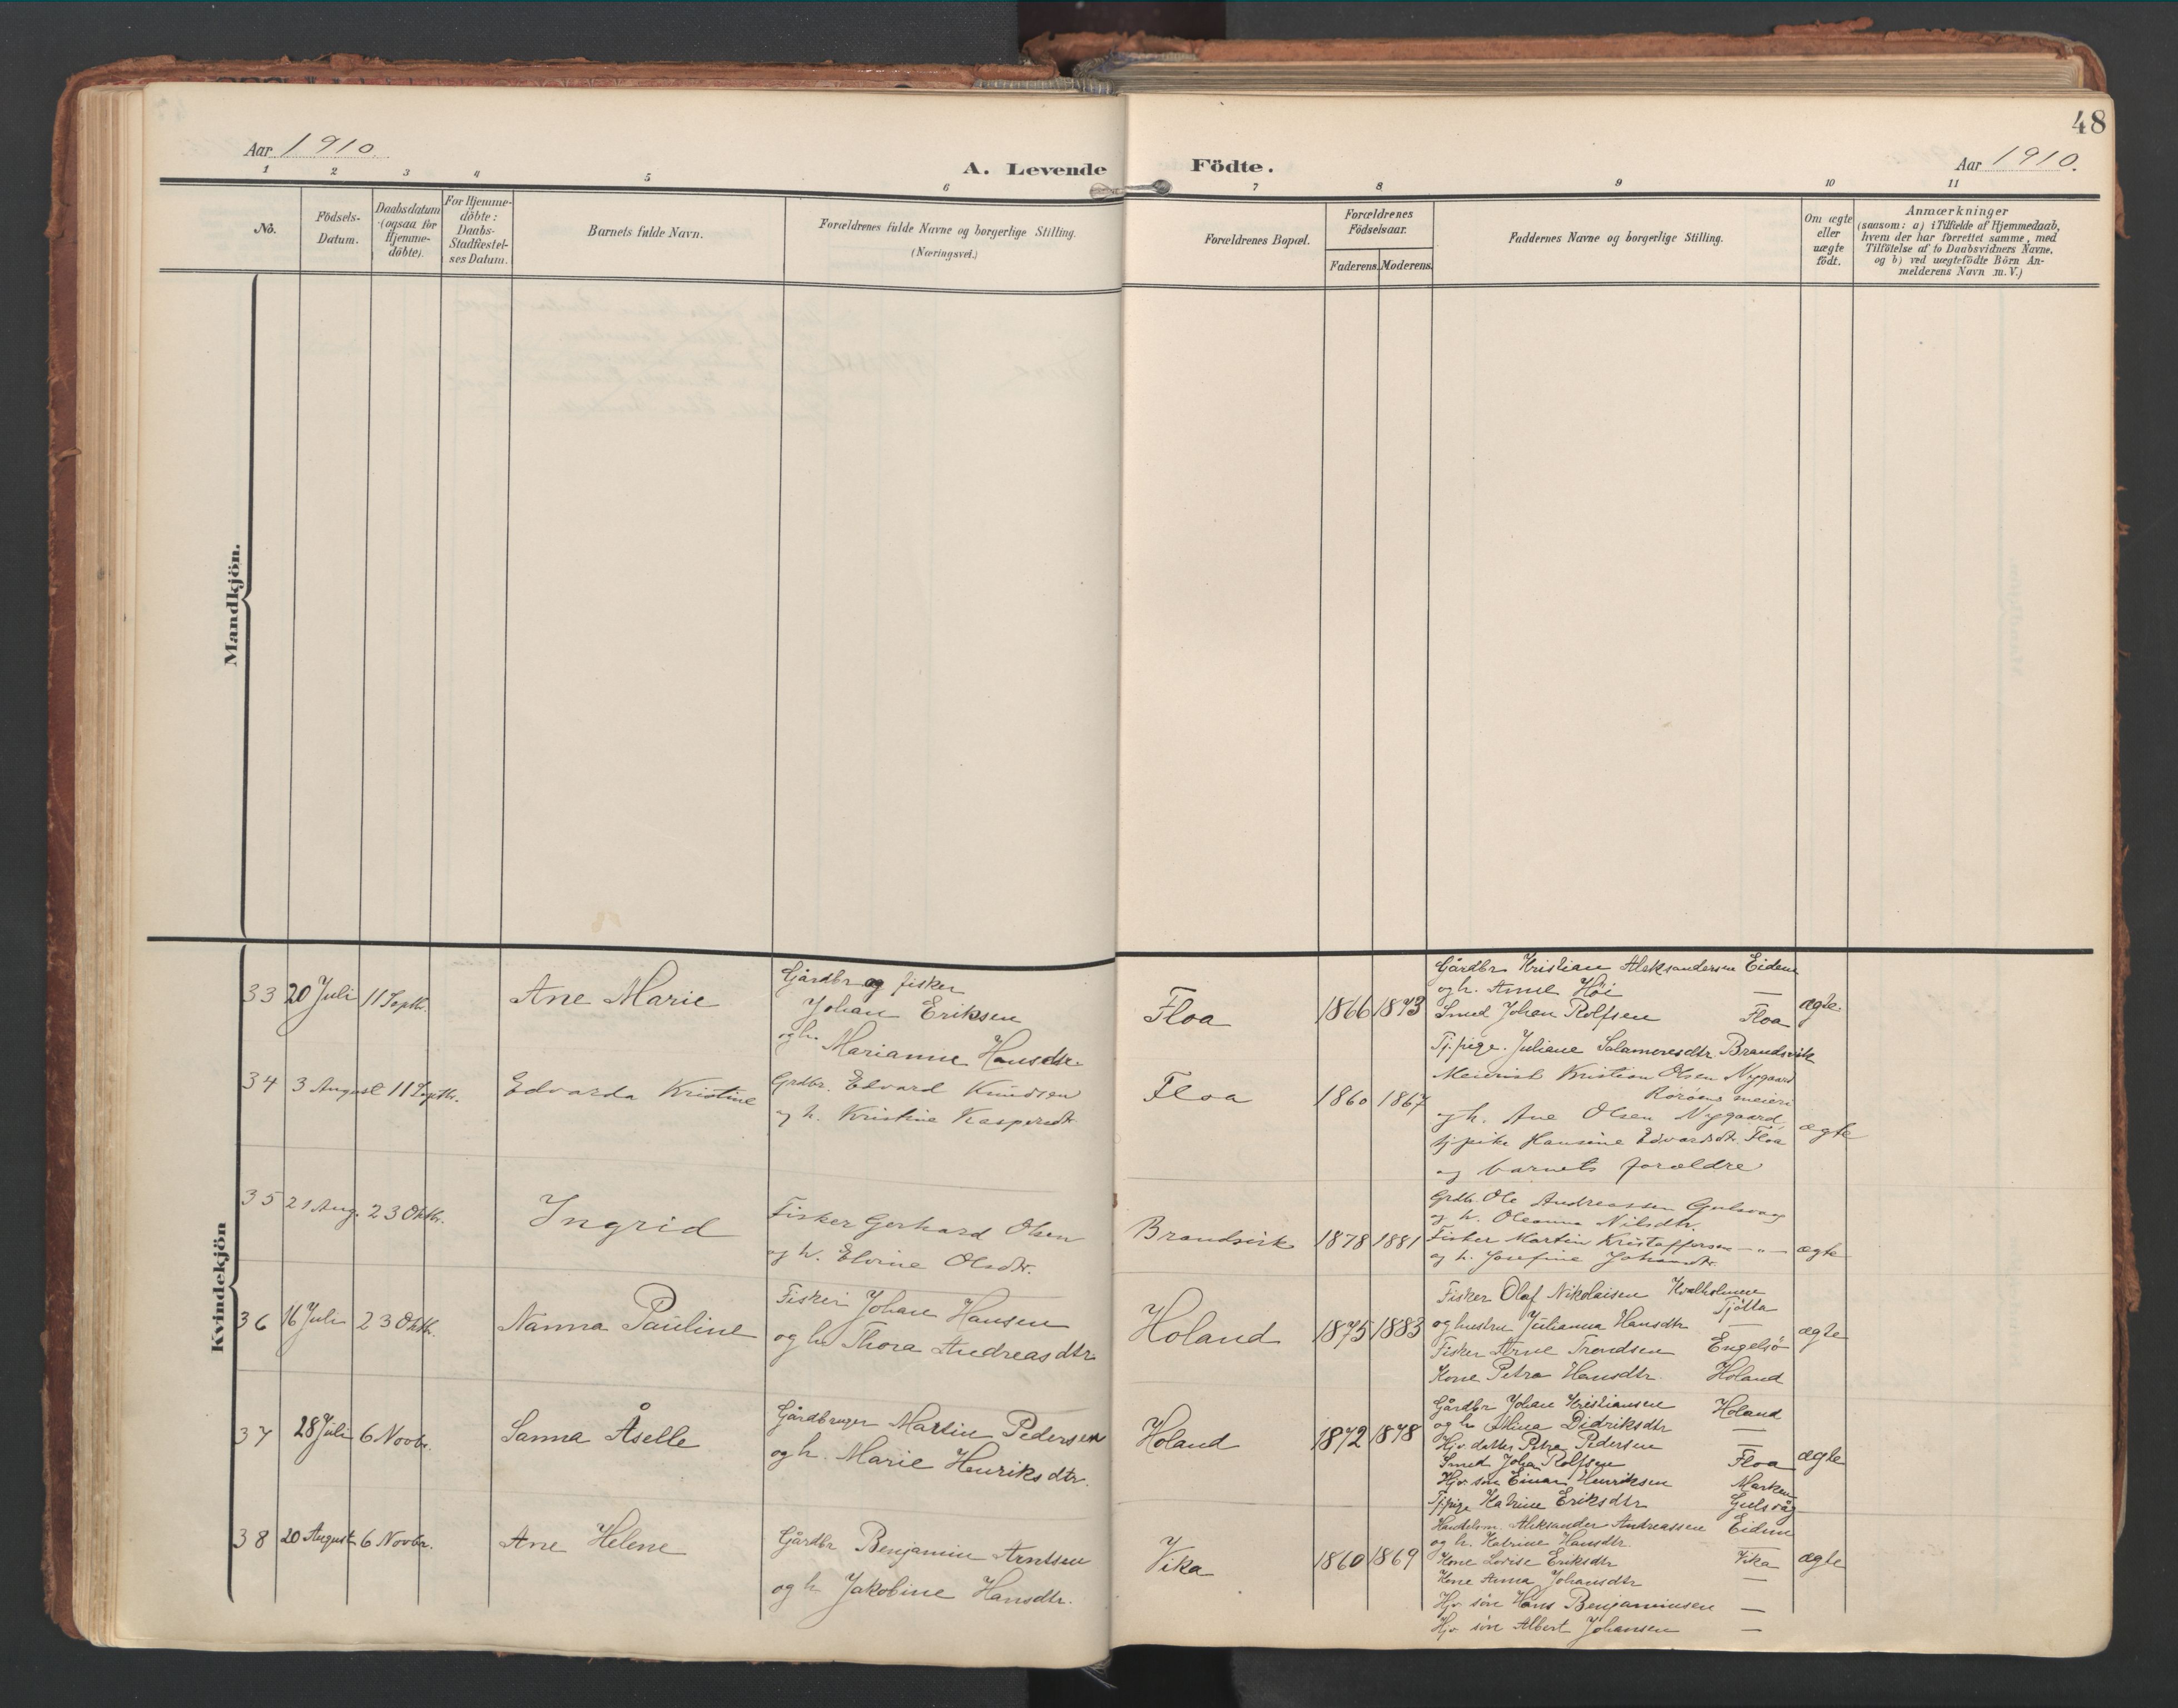 48
Aar 1910.
A. Levende Födte.
Aar 1910.
1 2 3 4 5 6 7 8 9 10 11
No.
Födsels-
Datum.
Daabsdatum
(ogsaa for
Hjemme-
döbte).
For Hjemme-
döbte:
Daabs-
Stadfæstel-
ses Datum.
Barnets fulde Navn.
Forældrenes fulde Navne og borgerlige Stilling.
(Næringsvei.)
Forældrenes Bopæl.
Forældrenes
Födselsaar.
Faderens. Moderens.
Faddernes Navne og borgerlige Stilling.
Om ægte
eller
uægte
födt.
Anmærkninger
(saasom: a) i Tilfælde af Hjemmedaab,
hvem der har forrettet samme, med
Tilföielse af to Daabsvidners Navne,
og b) ved uægtefödte Börn An-
melderens Navn m.V.)
Mandkjön.
Kvindekjön
33 20 Juli 11 Septbr. Ane Marie
Gårdbr og fisker
Johan Eriksen
og h. Marianne Hansdtr
Floa 1866 1873
Gårdbr Kristian Aleksandersen Eidem
og h. Anne Höi —
Smed Johan Rolfsen Floa
Tj.pige Juliane Salamonsdtr Brandsvik
ægte
34 3 August 11 Septbr. Edvarda Kristine
Grdbr. Edvard Knudsen
og h. Kristine Kaspersdtr
Floa 1860 1867
Meierist Kristian Olsen Nygaard
meieri
og h. Ane Olsen Nygaard
tj.pike Hansine Edvardsdtr. Floa
og barnets forældre
ægte
35 21 Aug. 23 Oktbr. Ingrid
Fisker Gerhard Olsen
og h. Elvine Olsdtr.
Brandsvik 1878 1881
Grdbr. Ole Andreassen Gulsvaag
og h. Oleanna Nilsdtr.
Fisker Martin Kristoffersen — " —
og h. Josefine Johansdtr.
ægte
36 16 Juli 23 Oktbr. Nanna Pauline
Fisker Johan Hansen
og h. Thora Andreasdtr
Holand 1875 1883
Fisker Olaf Nikolaisen Hvalholmen
Tjötta
og hustru Julianna Hansdtr —
Fisker Arne Trondsen Engelsö
Kone Petra Hansdtr. Holand
ægte
37 28 Juli 6 Novbr. Sanna Åselle
Gårdbruger Martin Pedersen
og h. Marie Henriksdtr.
Holand 1872 1878
Gårdbr Johan Kristiansen Holand
og h. Didriksdtr —
Hjv. datter Petra Pedersen
Smed Johan Rolfsen Floa
Hjv. sön Einar Henriksen Marken
Tj.pige Katrine Eriksdtr Gulsvåg
ægte
38 20 August 6 Novbr. Ane Helene
Gårdbr Benjamin Arntsen
og h. Jakobine Hansdtr.
Vika 1860 1869
Handelsm. Aleksander Andreassen Eidem
og h. Katrine Hansdtr. —
Kone Lovise Eriksdtr Vika
Kone Anna Johansdtr —
Hjv sön Hans Benjaminsen —
Hjv sön Albert Johansen —
ægte